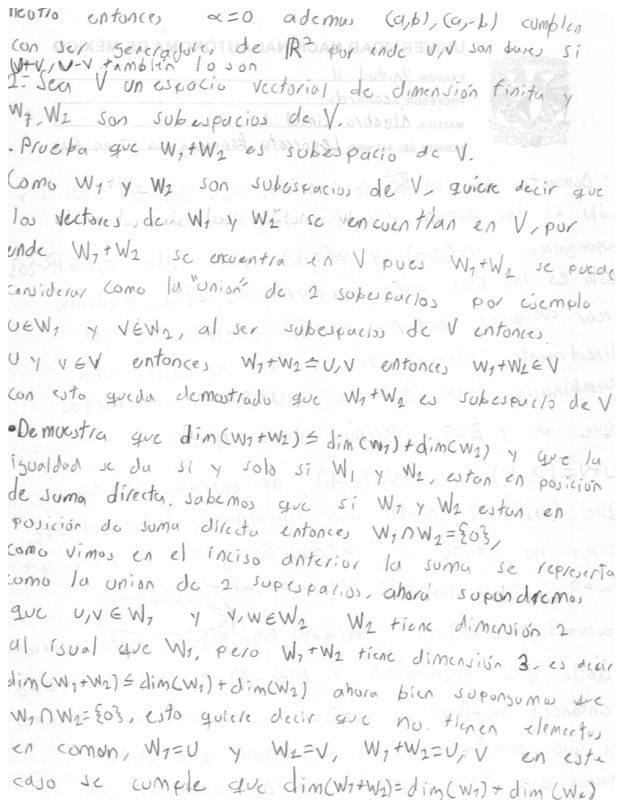 neutro entonces α=0 ademas (a,b), (a,-b) cumplen
con ser generadores de ℝ² por ende U,V son bases si
U+V, U-V también lo son
2= Sea V un espacio vectorial de dimensión finita y
W₁, W₂ son subespacios de V.
. Prueba que W₁+W₂ es subespacio de V.
Como W₁ y W₂ son subespacios de V, quiere decir que
los vectores de W₁ y W₂ se encuentran en V, por
ende W₁+W₂ se encuentra en V pues W₁+W₂ se puede
considerar como la "union" de 2 subespacios por ejemplo
U∈W₁ y V∈W₂, al ser subespacios de V entonces
U y v∈V entonces W₁+W₂=U,V entonces W₁+W₂∈V
con esto queda demostrado que W₁+W₂ es subespacio de V
•Demuestra que dim(W₁+W₂) ≤ dim(W₁)+dim(W₂) y que la
igualdad se da si y solo si W₁ y W₂, estan en posición
de suma directa. sabemos que si W₁ y W₂ estan en
posición de suma directa entonces W₁∩W₂={0},
como vimos en el inciso anterior la suma se representa
como la union de 2 supespacios, ahora supondremos
que u,v∈W₁ y v,w∈W₂ W₂ tiene dimensión 2
al igual que W₁, pero W₁+W₂ tiene dimensión 3. es decir
dim(W₁+W₂) ≤ dim(W₁)+dim(W₂) ahora bien supongamos que
W₁∩W₂={0}, esto quiere decir que no tienen elementos
en común, W₁=U y W₂=V, W₁+W₂=U,V en este
caso se cumple que dim(W₁+W₂)=dim(W₁)+dim(W₂)